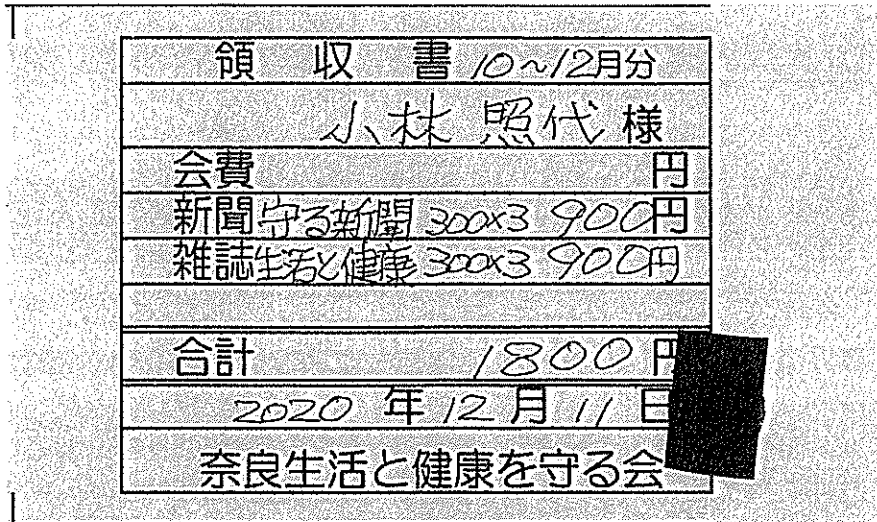 領 収 書 10~12月分
小林 照代 様
会費 円
新聞 守る新聞 300×3 900円
雑誌 生活と健康 300×3 900円
合計 1800円
2020 年 12 月 11 日
奈良生活と健康を守る会